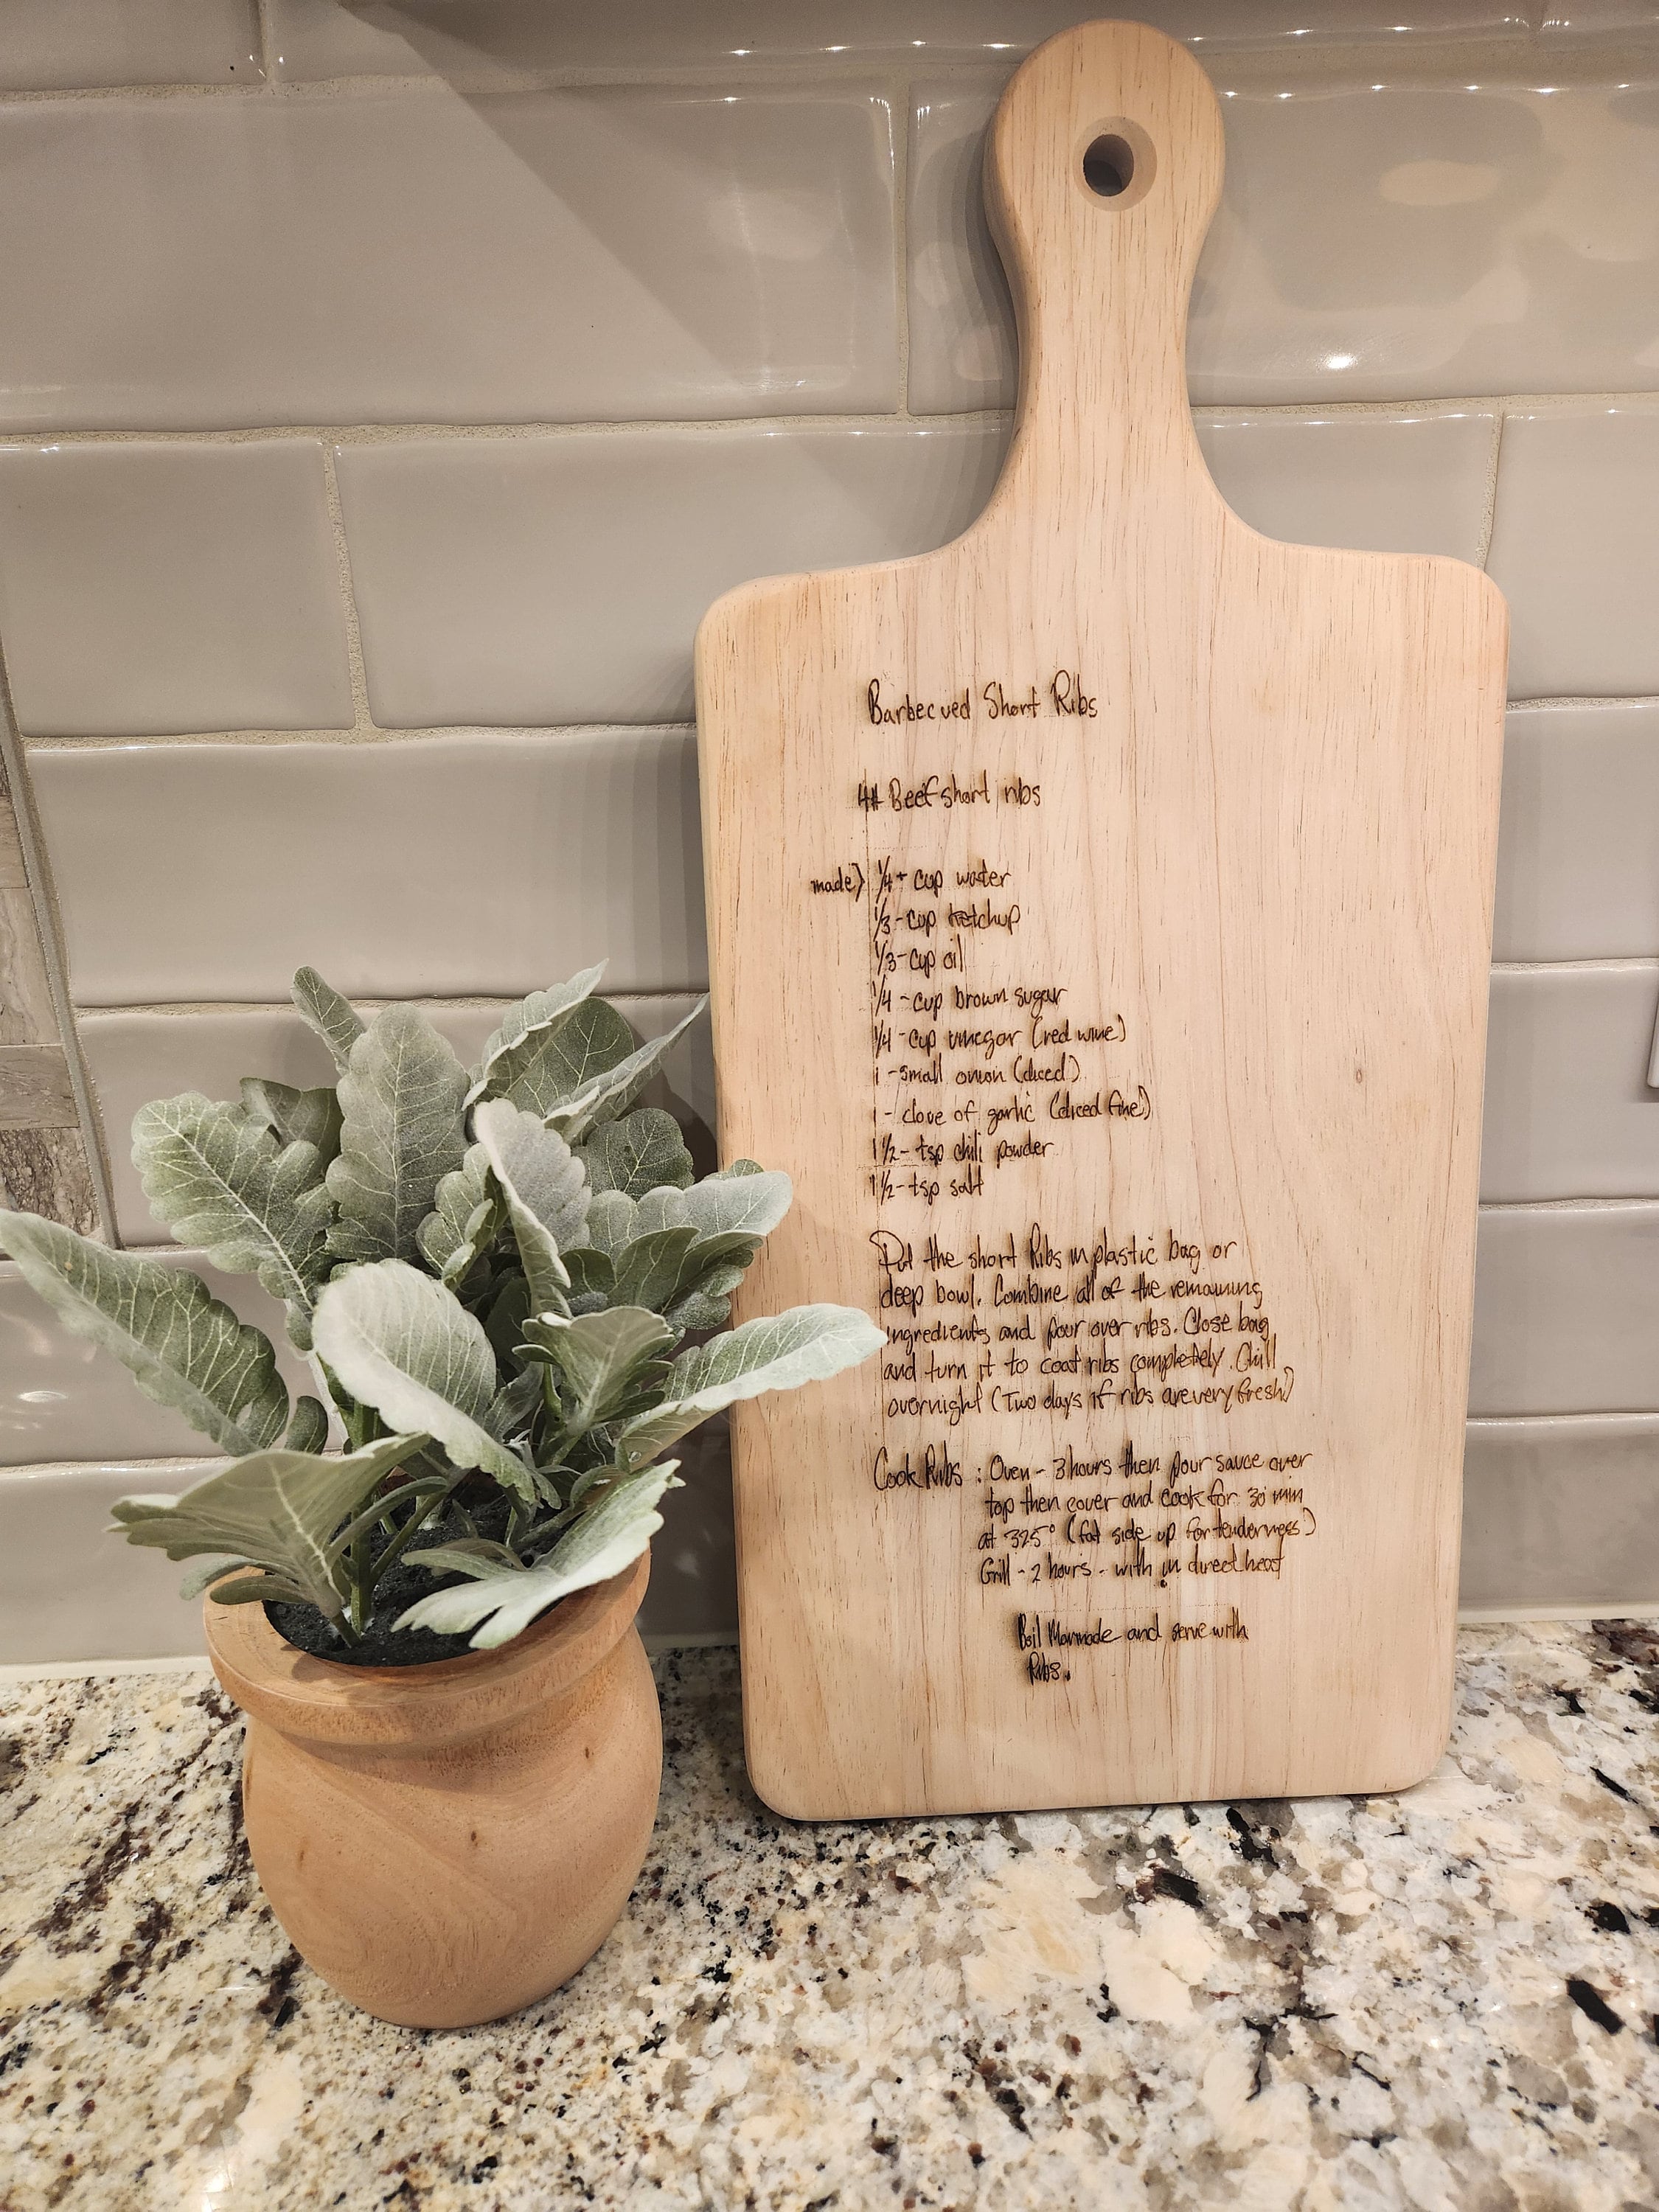 Barbecued Short Ribs
4# Beef short ribs
made} 1/4+ cup water
1/3 - cup ketchup
1/3 - cup oil
1/4 - cup brown sugar
1/4 - cup vinegar (red wine)
1 - small onion (diced)
1 - clove of garlic (diced fine)
1 1/2 - tsp chili powder
1 1/2 - tsp salt
Put the short Ribs in plastic bag or
deep bowl. Combine all of the remaining
ingredients and pour over ribs. Close bag
and turn it to coat ribs completely. Chill
overnight (Two days if ribs are very fresh)
Cook Ribs : Oven - 3 hours then pour sauce over
top then cover and cook for 30 min
at 325° (fat side up for tenderness)
Grill - 2 hours - with in direct heat
Boil Marinade and serve with
Ribs.